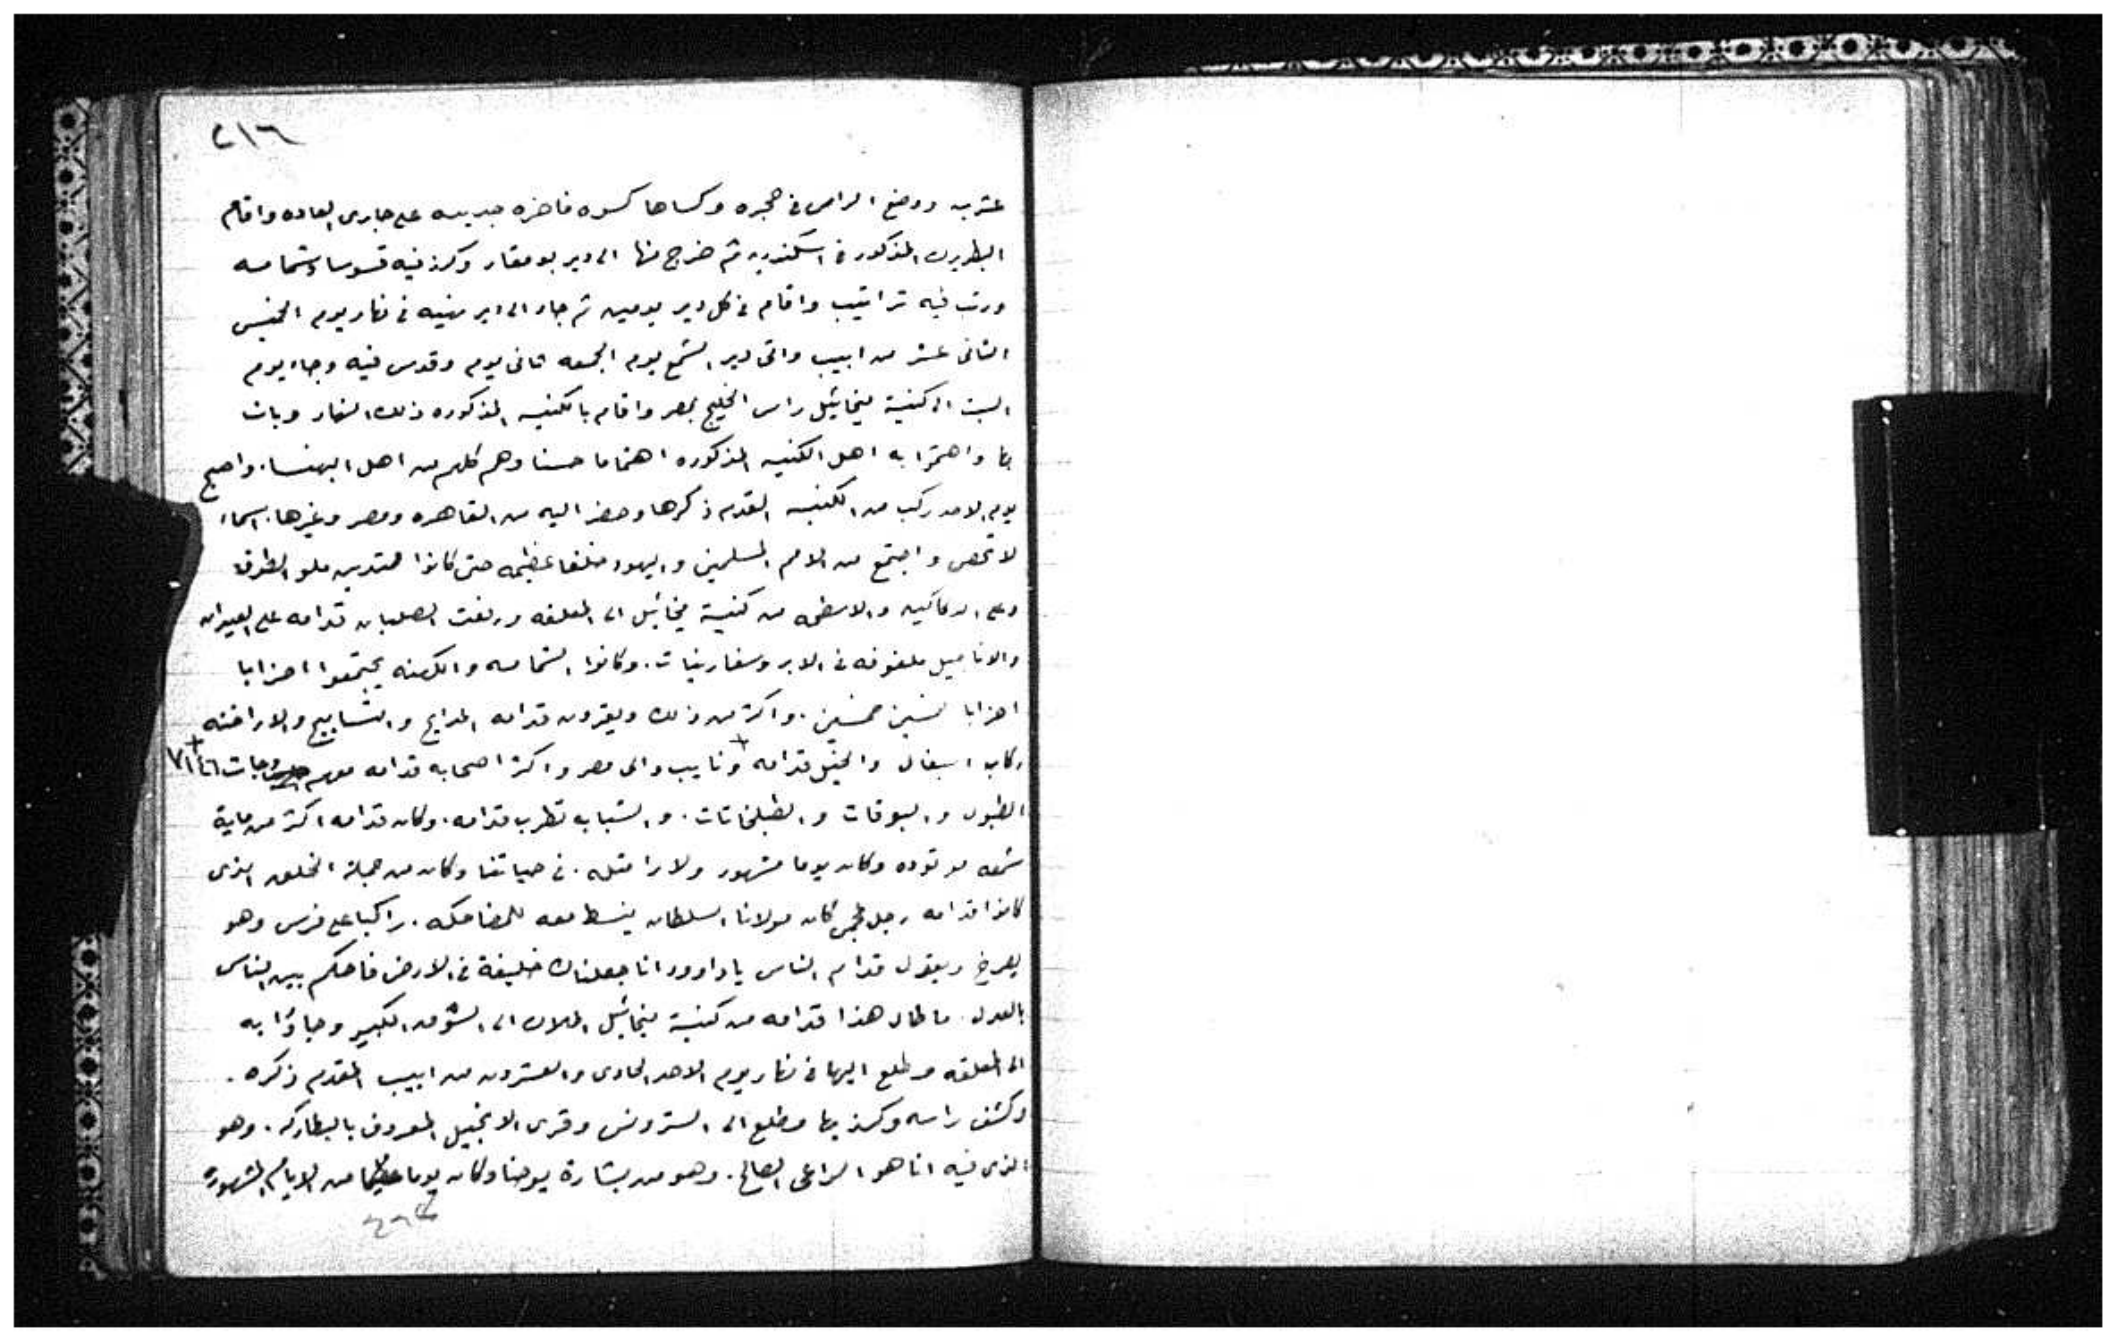 ٢١٦
عشريه ووضع الراس فى حجره وكساها كسوه فاخره جديده على جارى العاده واقام
البطريرك المذكور فى اسكندريه ثم خرج منها الى دير بو مقار وكرز فيه قسوسا وشمامسه
ورتب فيه تراتيب واقام فى كل دير يومين ثم جاء الى دير نهيه فى نهار يوم الخميس
الثانى عشر من ابيب واتى دير الشمع يوم الجمعه ثانى يوم وقدس فيه وجاء يوم
السبت الى كنيسة ميخائيل راس الخليج بمصر واقام بالكنيسه المذكوره ذلك النهار وبات
بها واهتموا به اهل الكنيسه المذكوره اهتماما حسنا وهم كلهم من اهل البهنسا. واصبح
يوم الاحد ركب من الكنيسه المقدم ذكرها وحضر اليه من القاهره ومصر وغيرها. اسماء
لا تحصى واجتمع من الامم المسلمين واليهود خلقا عظيمه حتى كانوا ممتدين ملو الطرقا
وعلى الدكاكين والاسطحه من كنيسة ميخائيل الى المعلقه ورفعت الصلبان قدامه على العيدان
والاناجيل ملفوفه فى الابر وسفارينات. وكانوا الشمامسه والكهنه يجتمعوا احزابا
احزابا خمسين خمسين. واكثر من ذلك ويقرون قدامه المدايح والتسابيح والاراخنه
ركاب البغال والخيل قدامه ونايب والى مصر واكثر اصحابه قدامه معهم وجات ٧١٤٦
الطبول والبوقات والطبلخانات. والشباب تطرب قدامه. وكان قدامه اكثر من ماية
شمعه موقوده وكان يوما مشهور ولا را مثله. فى حياتنا وكان من جملة الخلق الذى
كانوا قدامه رجل عجمى كان مولانا السلطان ينبسط معه للمضاحكه. راكبا على فرس وهو
يصرخ ويقول قدام الناس يا داوود انا جعلناك خليفة فى الارض فاحكم بين الناس
بالعدل. ما طال هذا قدامه من كنيسة ميخائيل الملاك الى السوق الكبير وجاؤا به
الى المعلقه وطلع اليها فى نهار يوم الاحد الحادى والعشرون من ابيب المقدم ذكره.
وكشف راسه وكرز بها وطلع الى الستروس وقرى الانجيل المعروف بالبطاركه. وهو
الذى فيه انا هو الراعى الصالح. وهو من بشارة يوحنا وكان يوما عظيما من الايام المشهوره